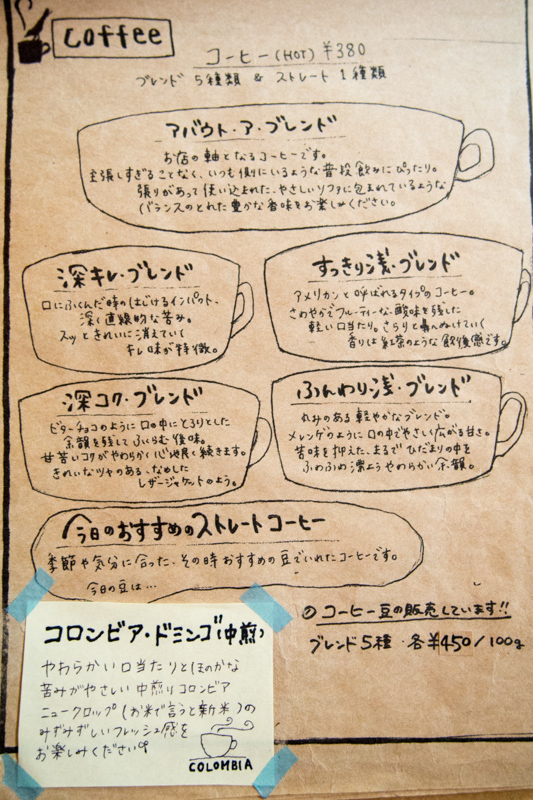 Coffee
コーヒー(HOT) ¥380
ブレンド 5種類 & ストレート 1種類
アバウト・ア・ブレンド
お店の軸となるコーヒーです。
主張しすぎることなく、いつも側にいるような普段飲みにぴったり。
張りがあって使い込まれた、やさしいソファに包まれているような
バランスのとれた豊かな香味をお楽しみください。
深キレ・ブレンド
口にふくんだ時のはじけるインパクト、
深く直線的な苦み。
スッときれいに消えていく
キレ味が特徴。
すっきり浅・ブレンド
アメリカンと呼ばれるタイプのコーヒー。
さわやかでフルーティーな酸味を残した
軽い口当たり。さらりと鼻へぬけていく
香りは紅茶のような飲後感です。
深コク・ブレンド
ビターチョコのように口の中にとろりとした
余韻を残してふくらむ後味。
甘苦いコクがやわらかく心地良く続きます。
きれいなツヤのある、なめした
レザージャケットのよう。
ふんわり浅・ブレンド
丸みのある軽やかなブレンド。
メレンゲのように口の中でやさしく広がる甘さ。
苦味を抑えた、まるでひだまりの中を
ふわふわ漂うようやわらかい余韻。
今日のおすすめのストレートコーヒー
季節や気分に合った、その時おすすめの豆でいれたコーヒーです。
今日の豆は…
コロンビア・ドミンゴ(中煎)
やわらかい口当たりとほのかな
苦みがやさしい中煎りコロンビア
ニュークロップ(お米で言うと新米)の
みずみずしいフレッシュ感を
お楽しみください
COLOMBIA
コーヒー豆の販売しています!!
ブレンド5種・各¥450/100g